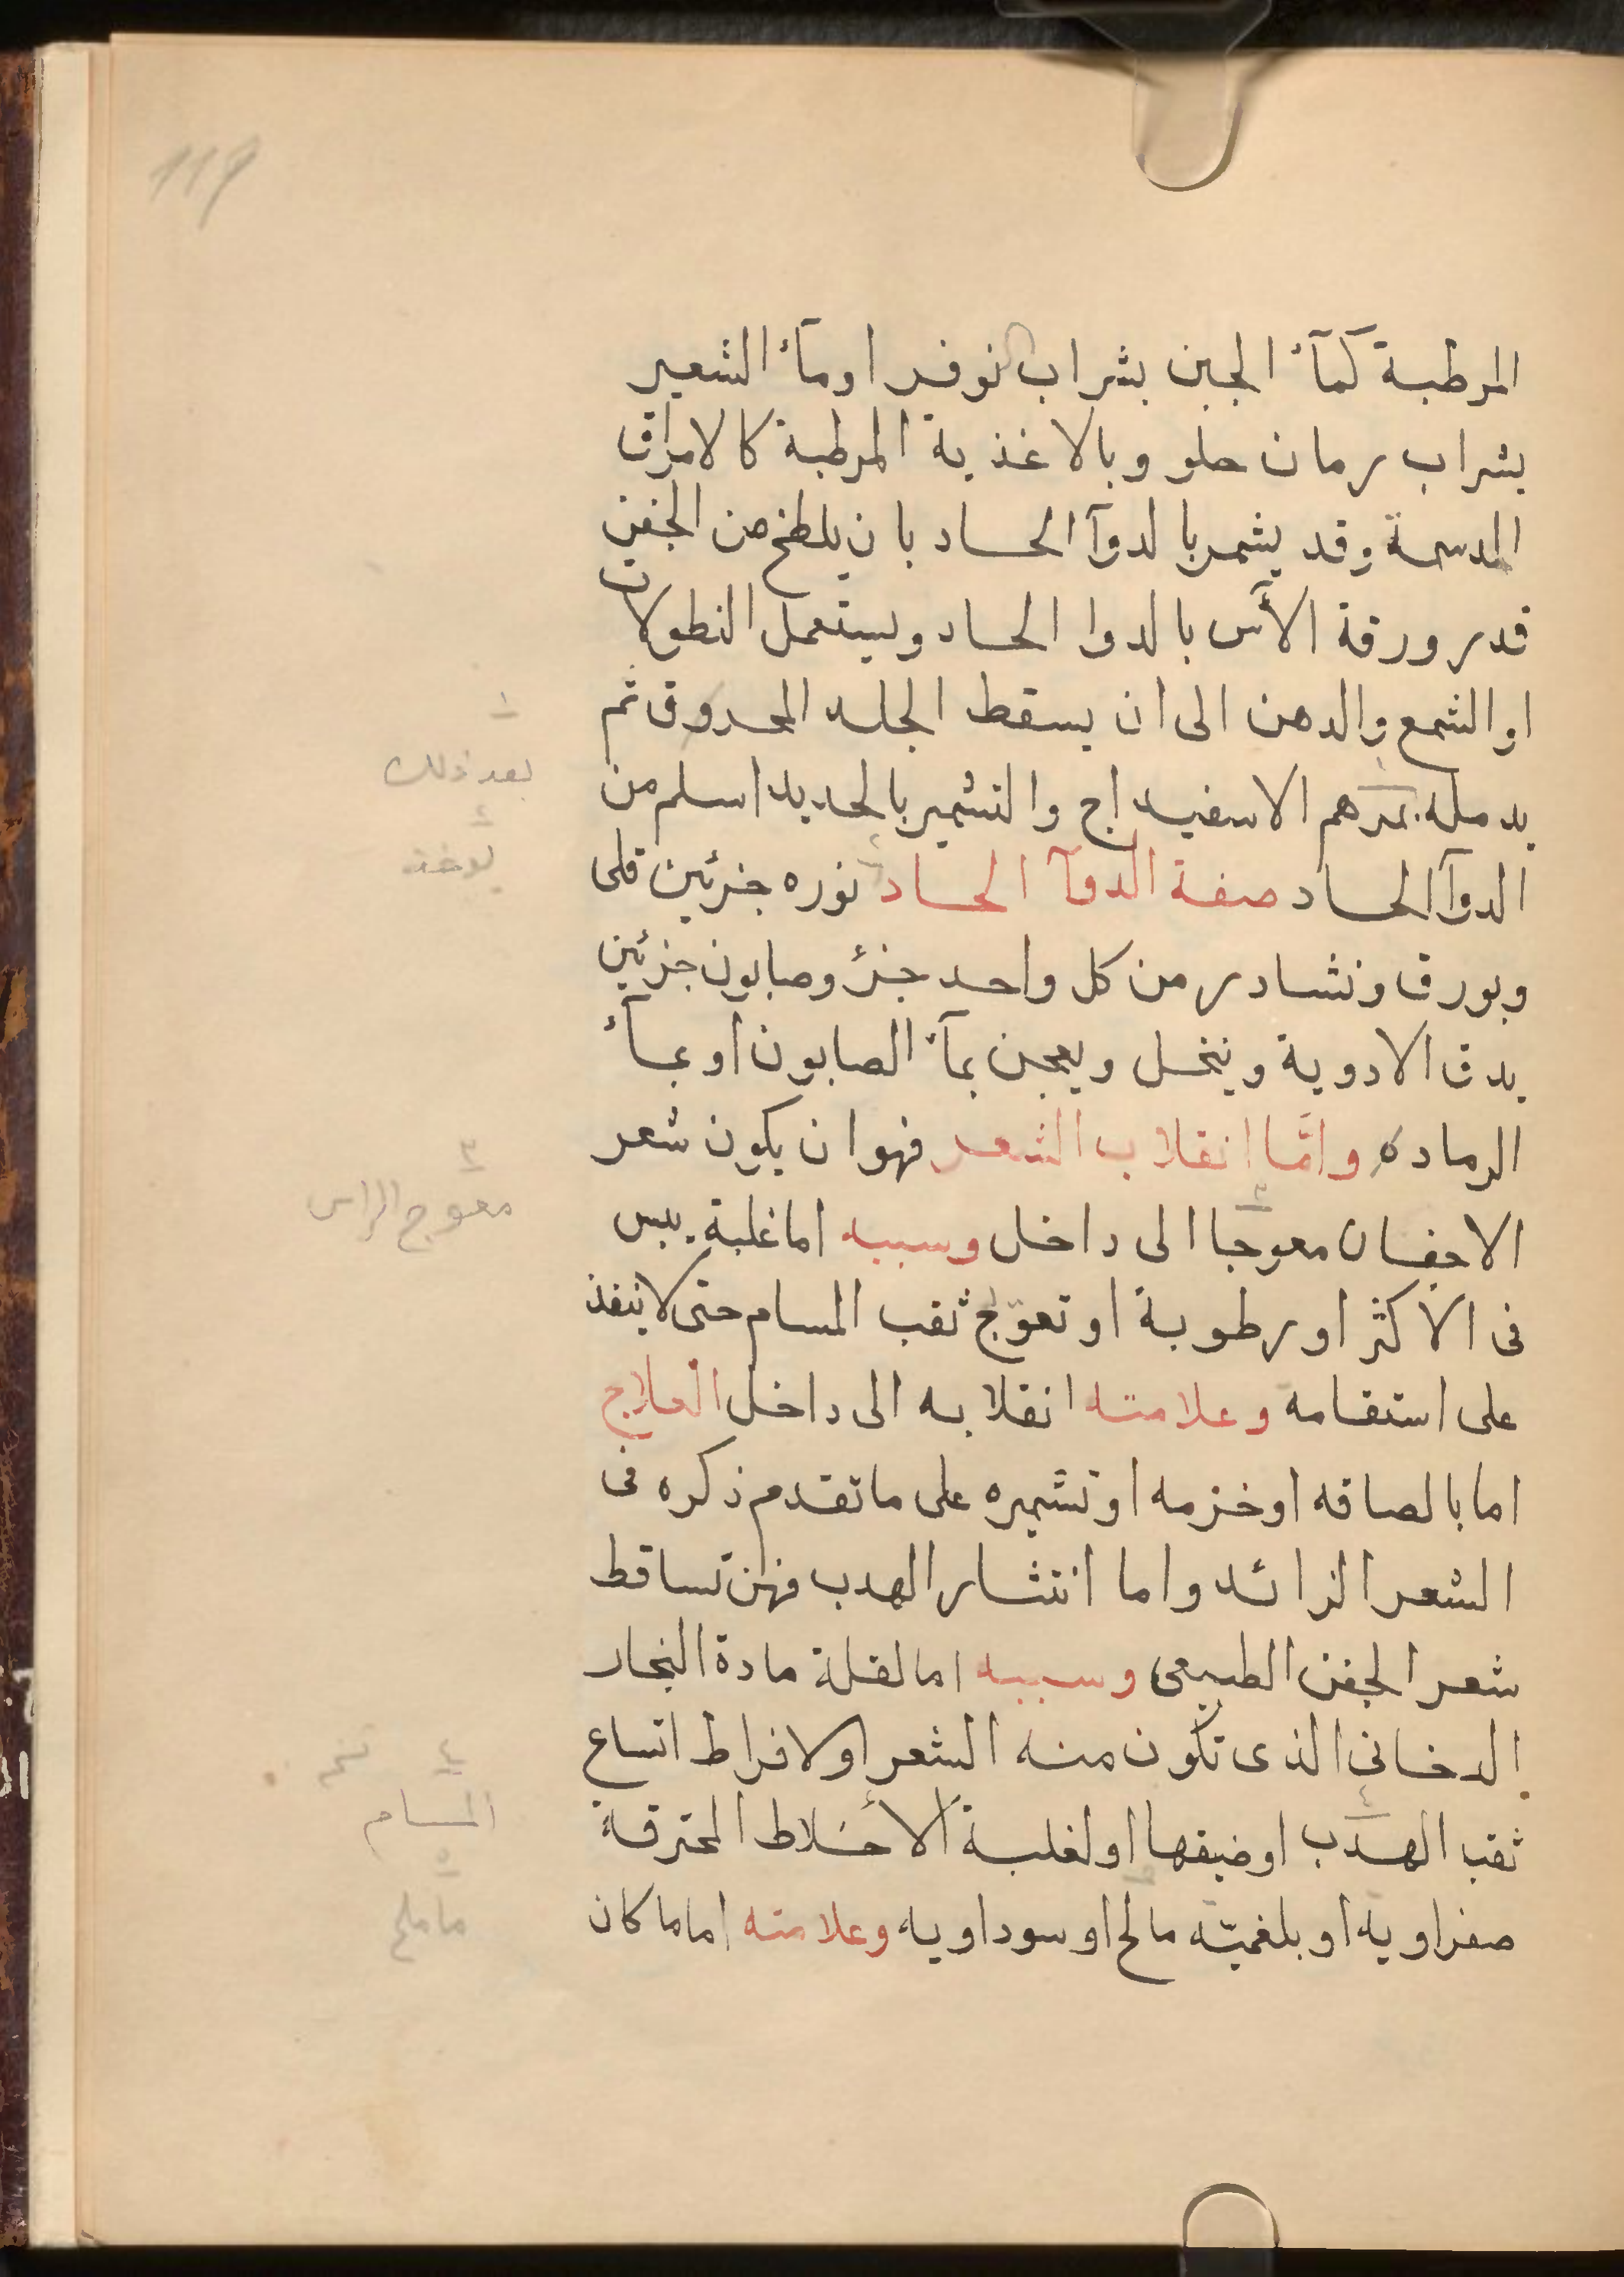 119
المرطبة كمآء الجبن بشراب نوفر اومآء الشعير
بشراب رمان حلو وبالاغذية المرطبة كالامراق
الدسمة وقد يشمر بالدوآ الحاد بان يلطخ من الجفن
قدر ورقة الآس بالدوا الحاد ويستعمل النطولات
او الشمع والدهن الى ان يسقط الجلد المحروق ثم
يدمله بمرهم الاسفيداج والتشمير بالحديد اسلم من
الدوآ الحاد صفة الدوآ الحاد نوره جزئين قلى
وبورق ونشادر من كل واحد جزء وصابون جزئين
يدق الادوية وينخل ويعجن بمآء الصابون او بمآء
الرماده واما انقلاب الشعر فهو ان يكون شعر
الاجفان معوجا الى داخل وسببه اما غلبة يبس
فى الاكثر او رطوبة او تعوّج ثقب المسام حتى لا ينفذ
على استقامه وعلامته انقلابه الى داخل العلاج
اما بالصاقه او خزمه او تشميره على ما تقدم ذكره فى
الشعر الزائد واما انتشار الهدب فهن تساقط
شعر الجفن الطبيعى وسببه اما لقلة مادة البخار
الدخانى الذى تكون منه الشعر او لافراط اتساع
ثقب الهدب اوضيقها او لغلبة الأخلاط المحترقة
صفراويه او بلغميّه مالح او سوداويه وعلامته اما ما كان
١
بعد ذلك
٢
يوخذ
٣
معوج الراس
٤
المسام
٥
ما ملح